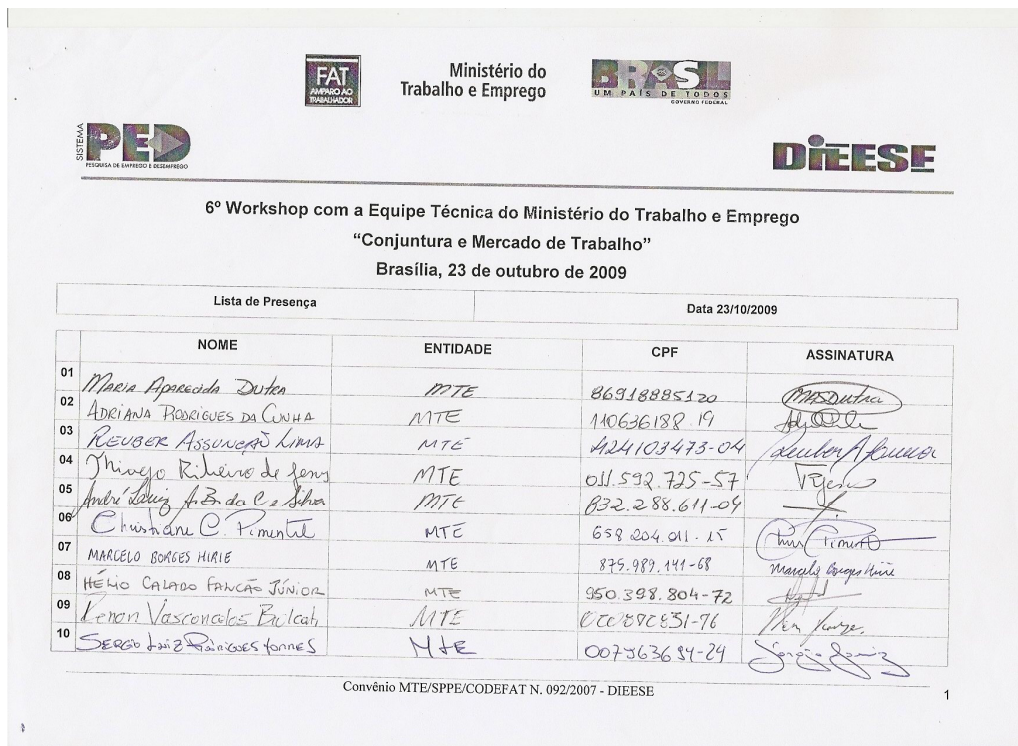 FAT
AMPARO AO
TRABALHADOR
Ministério do
Trabalho e Emprego
BRASIL
UM PAÍS DE TODOS
GOVERNO FEDERAL
SISTEMA
PED
PESQUISA DE EMPREGO E DESEMPREGO
DIEESE
6º Workshop com a Equipe Técnica do Ministério do Trabalho e Emprego
“Conjuntura e Mercado de Trabalho”
Brasília, 23 de outubro de 2009
Lista de Presença Data 23/10/2009
NOME ENTIDADE CPF ASSINATURA
01 MARIA APARECIDA DUTRA MTE 86918885120 MASDutra
02 ADRIANA RODRIGUES DA CUNHA MTE 110636188.19
03 REUBER ASSUNÇÃO LIMA MTE 424103473-04
04 Thiago Ribeiro de MTE 011.592.725-57
05 André Luiz da C e Silva MTE 832.288.611-04
06 Christiane C. Pimentel MTE 658 204.011-15 Chris Pimentel
07 MARCELO BORGES HIRIE MTE 875.989.141-68 Marcelo Borges Hirie
08 HÉLIO CALADO FANCÃO JÚNIOR MTE 950.398.804-72
09 Renan Vasconcelos MTE
10 SERGIO LUIZ RODRIGUES TORRES MTE
Convênio MTE/SPPE/CODEFAT N. 092/2007 - DIEESE
1